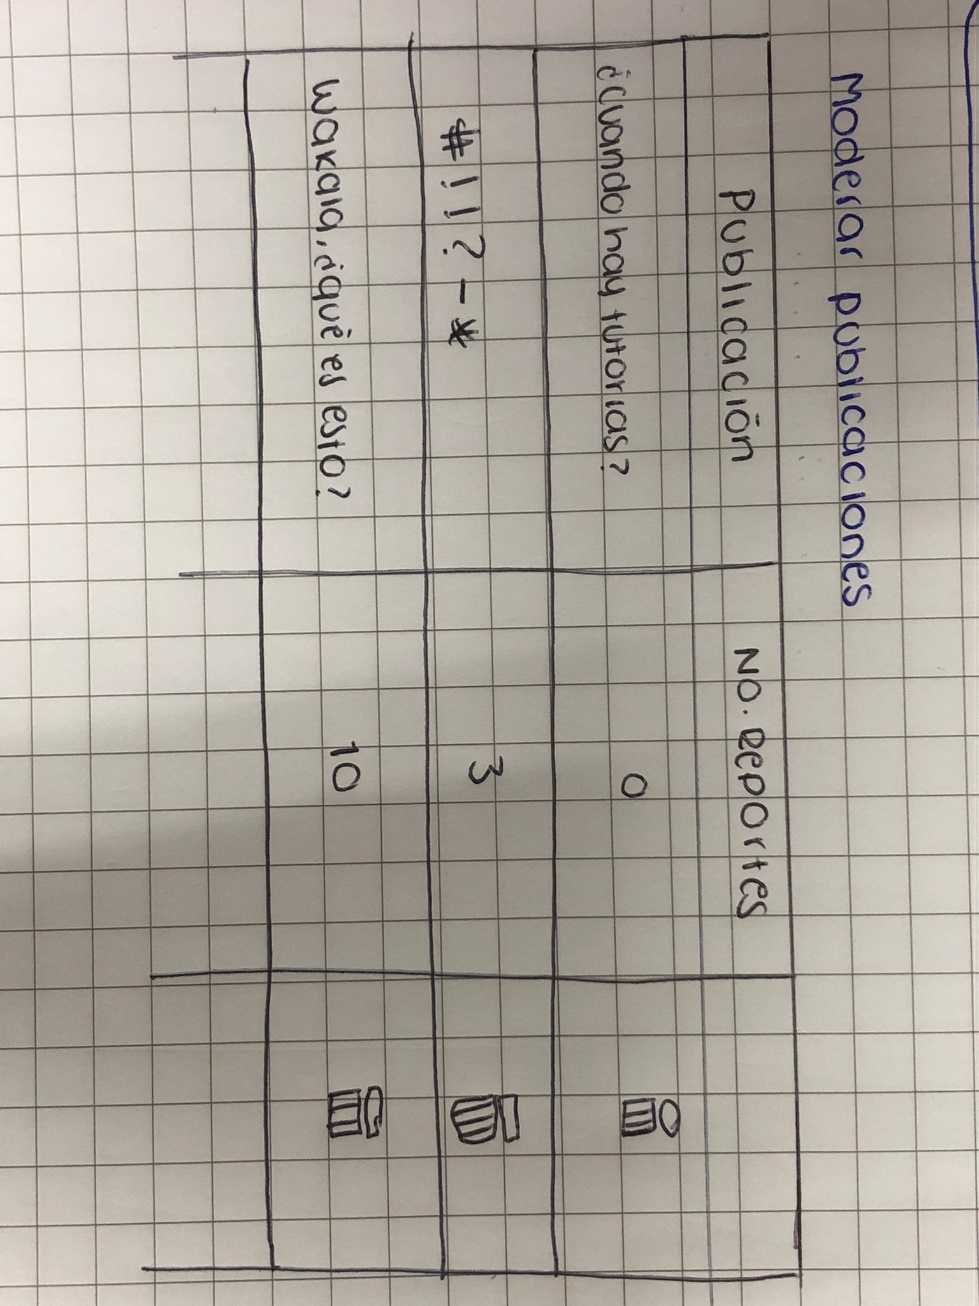 Moderar publicaciones
Publicación No. Reportes
¿Cuando hay tutorias? 0
#!!?-* 3
Wakala, ¿qué es esto? 10